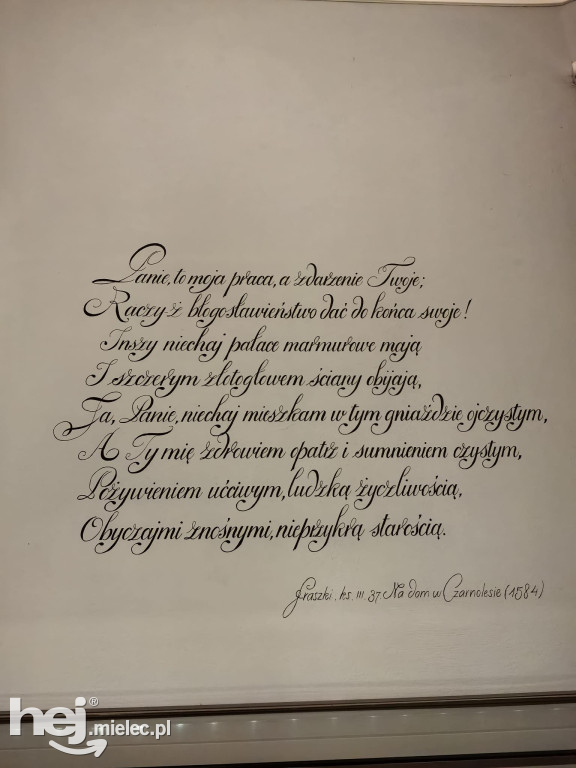 Panie, to moja praca, a zdarzenie Twoje;
Raczyż błogosławieństwo dać do końca swoje!
Inszy niechaj pałace marmurowe mają
I szczerym złotogłowem ściany obijają,
Ja, Panie, niechaj mieszkam w tym gniaździe ojczystym,
A Ty mię zdrowiem opatrz i sumnieniem czystym,
Pożywieniem ućciwym, ludzką życzliwością,
Obyczajmi znośnymi, nieprzykrą starością.
Fraszki, ks. III 37. Na dom w Czarnolesie (1584)
hej.mielec.pl